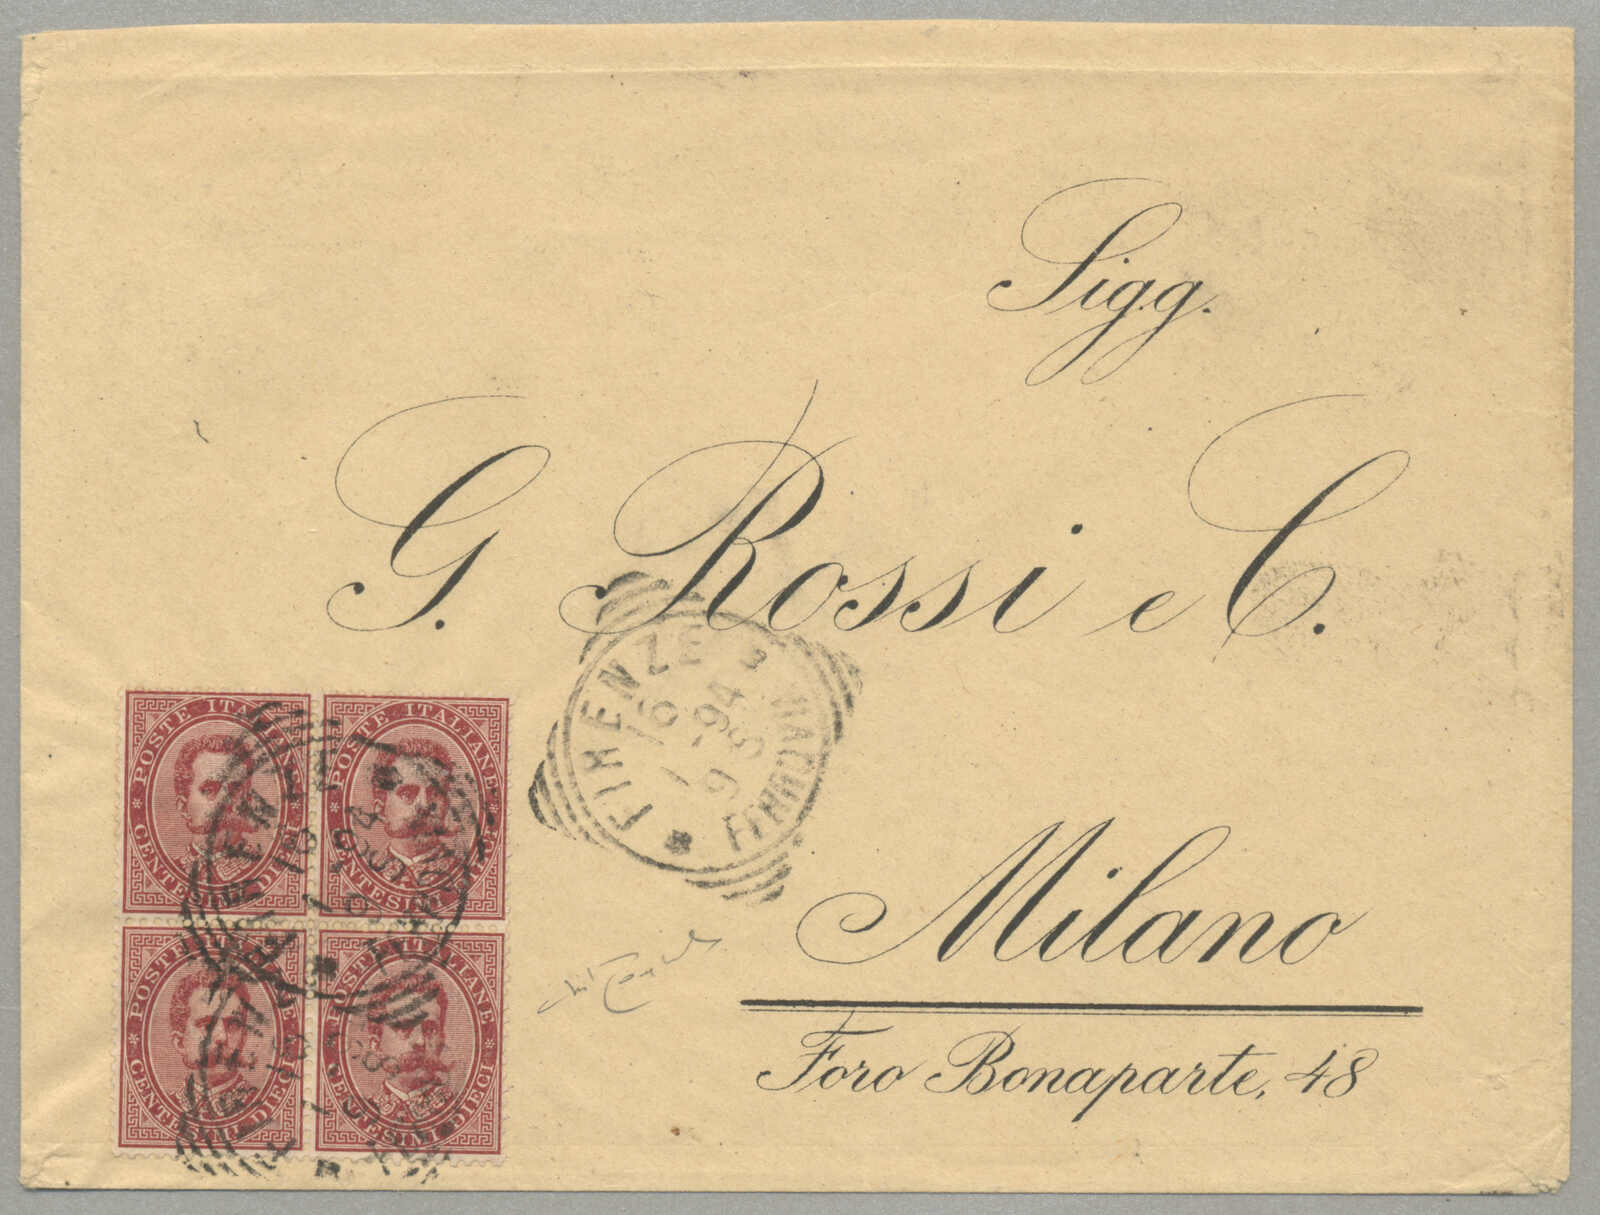 Sigg.
G. Rossi e C.
Milano
Foro Bonaparte, 48
FIRENZE
FERROVIA
16
1-94
9 S
POSTE ITALIANE
CENTESIMI DIECI
POSTE ITALIANE
CENTESIMI DIECI
POSTE ITALIANE
CENTESIMI DIECI
POSTE ITALIANE
CENTESIMI DIECI